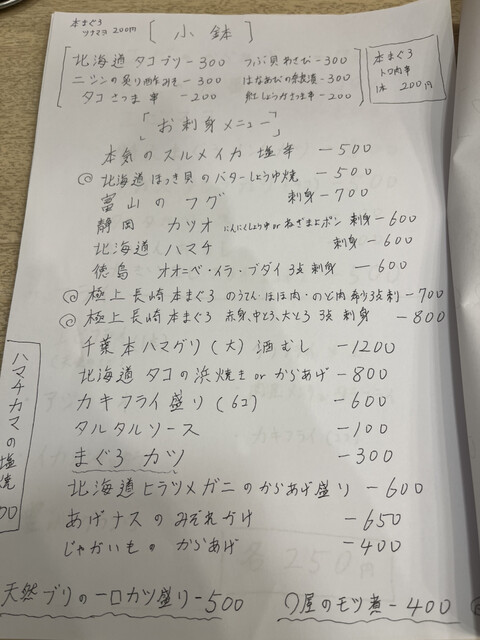 本まぐろ
ツナマヨ 200円
[小鉢]
北海道 タコブツ-300 つぶ貝わさび-300
ニシンの -300 はなわさびの -300
タコさつま -200 紅しょうがさつま -200
本まぐろ
トロ肉串
1本 200円
「お刺身メニュー」
本気のスルメイカ 塩辛 -500
◎北海道ほっき貝のバターしょうゆ焼 -500
富山のフグ 刺身-700
静岡 カツオ にんにくしょうゆ or ねぎまよポン 刺身-600
北海道ハマチ 刺身-600
徳島 オオニベ・イラ・ブダイ 3点 刺身 -600
◎極上長崎本まぐろ のうてん・ほほ肉・のど肉 希少3点刺-700
◎極上長崎本まぐろ 赤身、中とろ、大とろ 3点 刺身 -800
千葉本ハマグリ(大)酒むし -1200
北海道 タコの浜焼き or からあげ-800
カキフライ盛り(6コ) -600
タルタルソース -100
まぐろ カツ -300
北海道ヒラツメガニのからあげ盛り -600
あげナスのみぞれかけ -650
じゃがいもの からあげ -400
ハマチカマの塩焼
天然ブリの一口カツ盛り-500
屋のモツ煮-400